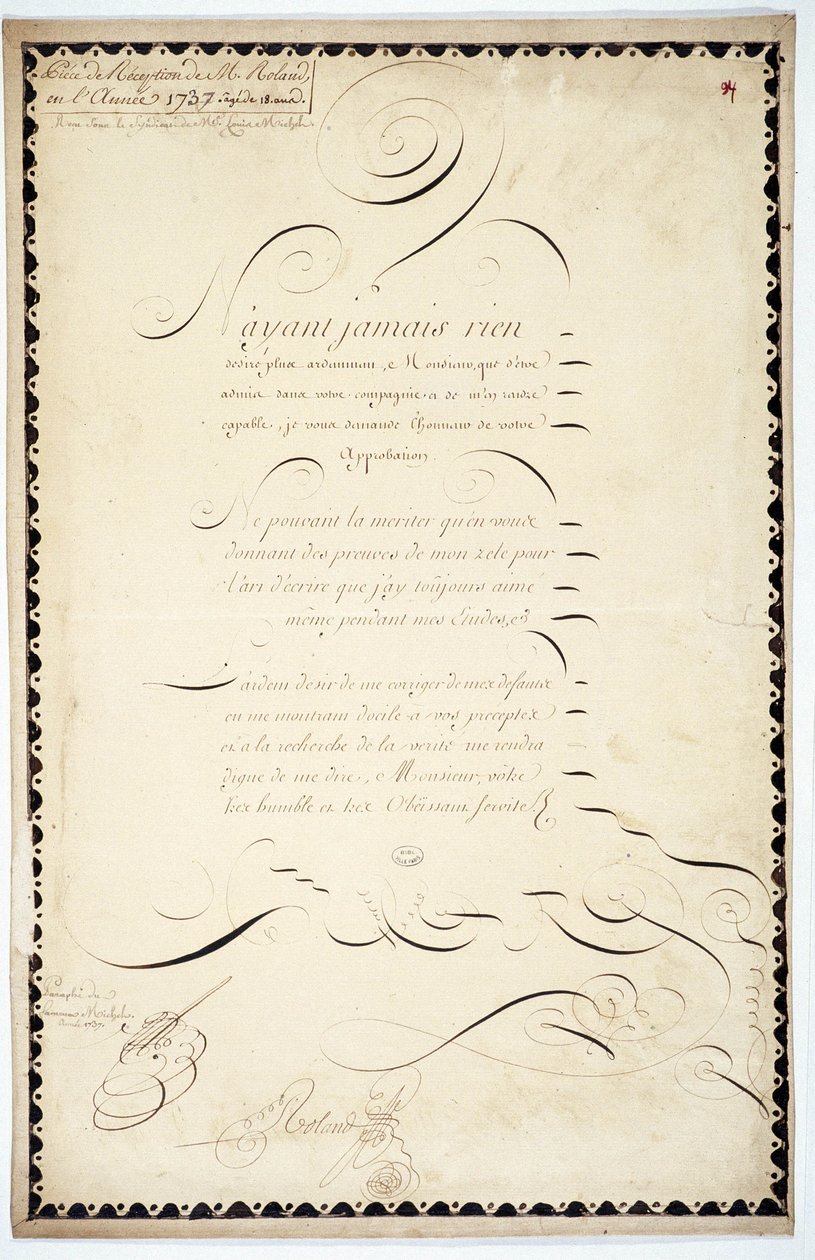 Piéce de Réception de M. Roland,
en l'Année 1737. âgé de 18. ans.
Reçu sous le Syndicat de Mr. Louis Michel.
94
N'ayant jamais rien
desiré plus ardemment, Monsieur, que d'être
admis dans votre compagnie et de m'en rendre
capable, je vous demande l'honneur de votre
Approbation.
Ne pouvant la meriter qu'en vous
donnant des preuves de mon zele pour
l'art d'écrire que j'ay toûjours aimé
même pendant mes Etudes, et
L'ardent desir de me corriger de mes defauts
en me montrant docile a vos preceptes
et a la recherche de la verité me rendra
digne de me dire, Monsieur, vôtre
tres humble et tres Obëissant servite.R
BIBL.
VILLE PARIS
Paraphe du
fameux Michel.
Année 1737.
Roland